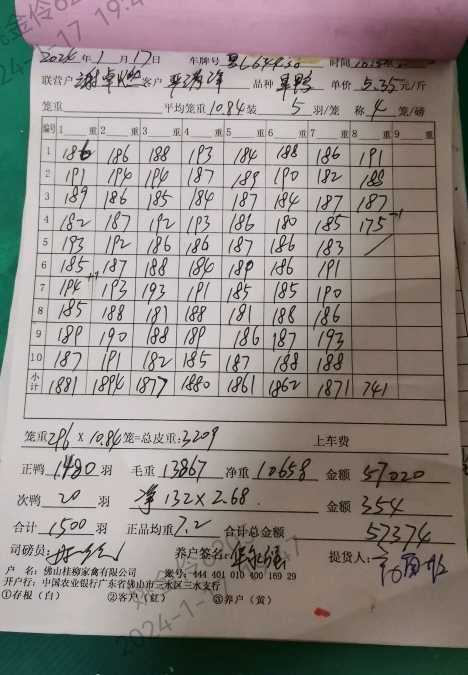 2024年1月17日 车牌号 时间
联营户 客户 品种 单价5.35元/斤
笼重 平均笼重10.84装 5 羽/笼 称 4 笼/磅
编号 1 重 2 重 3 重 4 重 5 重 6 重 7 重 8 重 9 重
1 186 186 188 193 184 188 186 191
2 191 194 194 187 189 190 182 188
3 189 186 185 184 187 184 187 187
4 182 187 192 193 186 180 185 175 -1
5 193 192 186 186 187 186 183
6 185 187 188 184 189 186 191
7 194 +1 193 193 191 185 185 190
8 185 188 181 188 181 188 186
9 189 190 188 189 186 187 193
10 187 191 182 185 187 188 188
小计 1881 1894 1877 1880 1861 1862 1871 741
笼重296×10.84笼=总皮重:3209 上车费
正鸭1480羽 毛重13867 净重10658 金额57020
次鸭20羽 净132×2.68 金额354
合计1500羽 正品均重7.2 合计总金额 57374
司磅员: 养户签名: 提货人:
户 名:佛山桂柳家禽有限公司 账号:444 401 010 400 169 29
开户行:中国农业银行广东省佛山市三水区三水支行
①存根(白) ②客户(红) ③养户(黄)